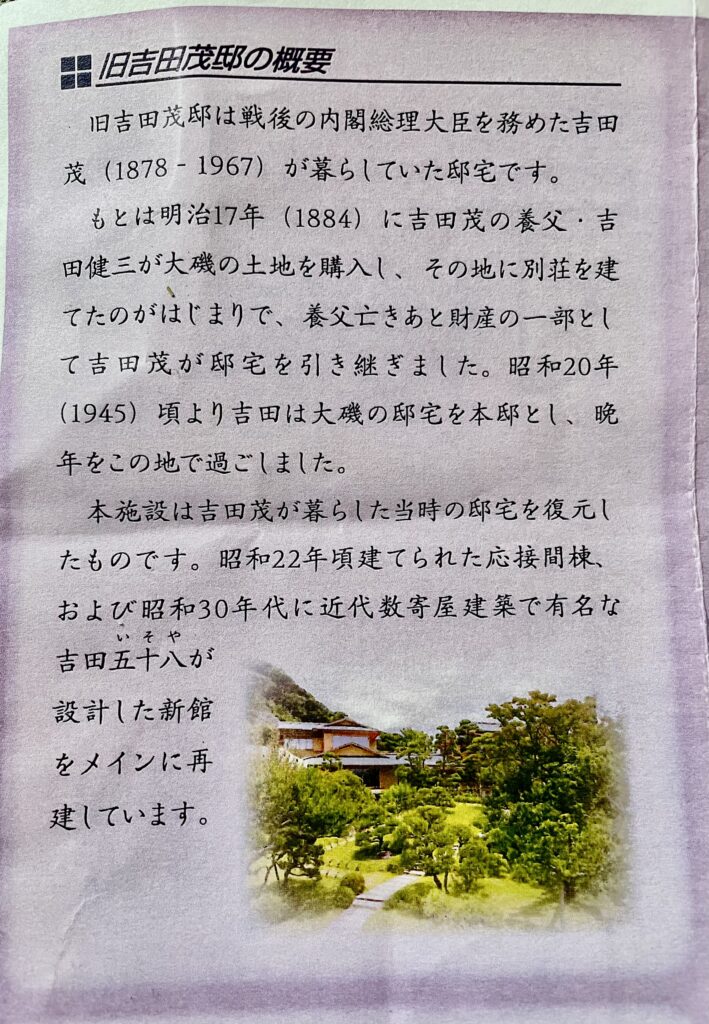 旧吉田茂邸の概要
旧吉田茂邸は戦後の内閣総理大臣を務めた吉田
茂（1878‐1967）が暮らしていた邸宅です。
もとは明治17年（1884）に吉田茂の養父・吉
田健三が大磯の土地を購入し、その地に別荘を建
てたのがはじまりで、養父亡きあと財産の一部とし
て吉田茂が邸宅を引き継ぎました。昭和20年
（1945）頃より吉田は大磯の邸宅を本邸とし、晩
年をこの地で過ごしました。
本施設は吉田茂が暮らした当時の邸宅を復元し
たものです。昭和22年頃建てられた応接間棟、
および昭和30年代に近代数寄屋建築で有名な
いそや
吉田五十八が
設計した新館
をメインに再
建しています。